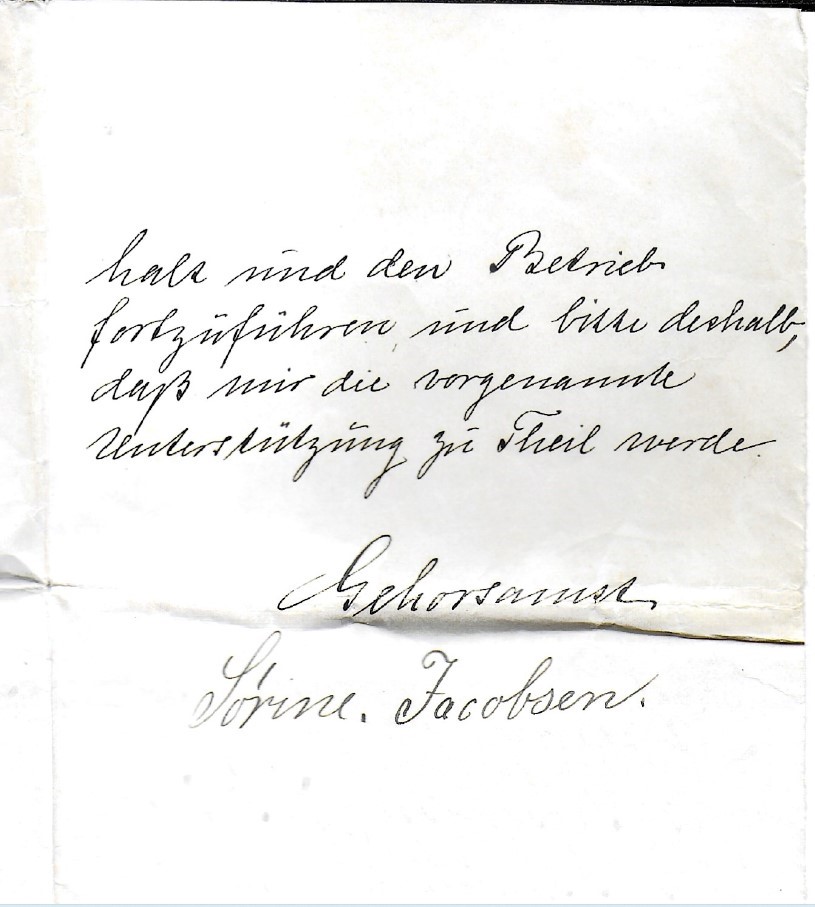 halt und den Betrieb
fortzuführen und bitte deshalb,
daß mir die vorgenannte
Unterstützung zu Theil werde.
Gehorsamst
Sørine. Jacobsen.